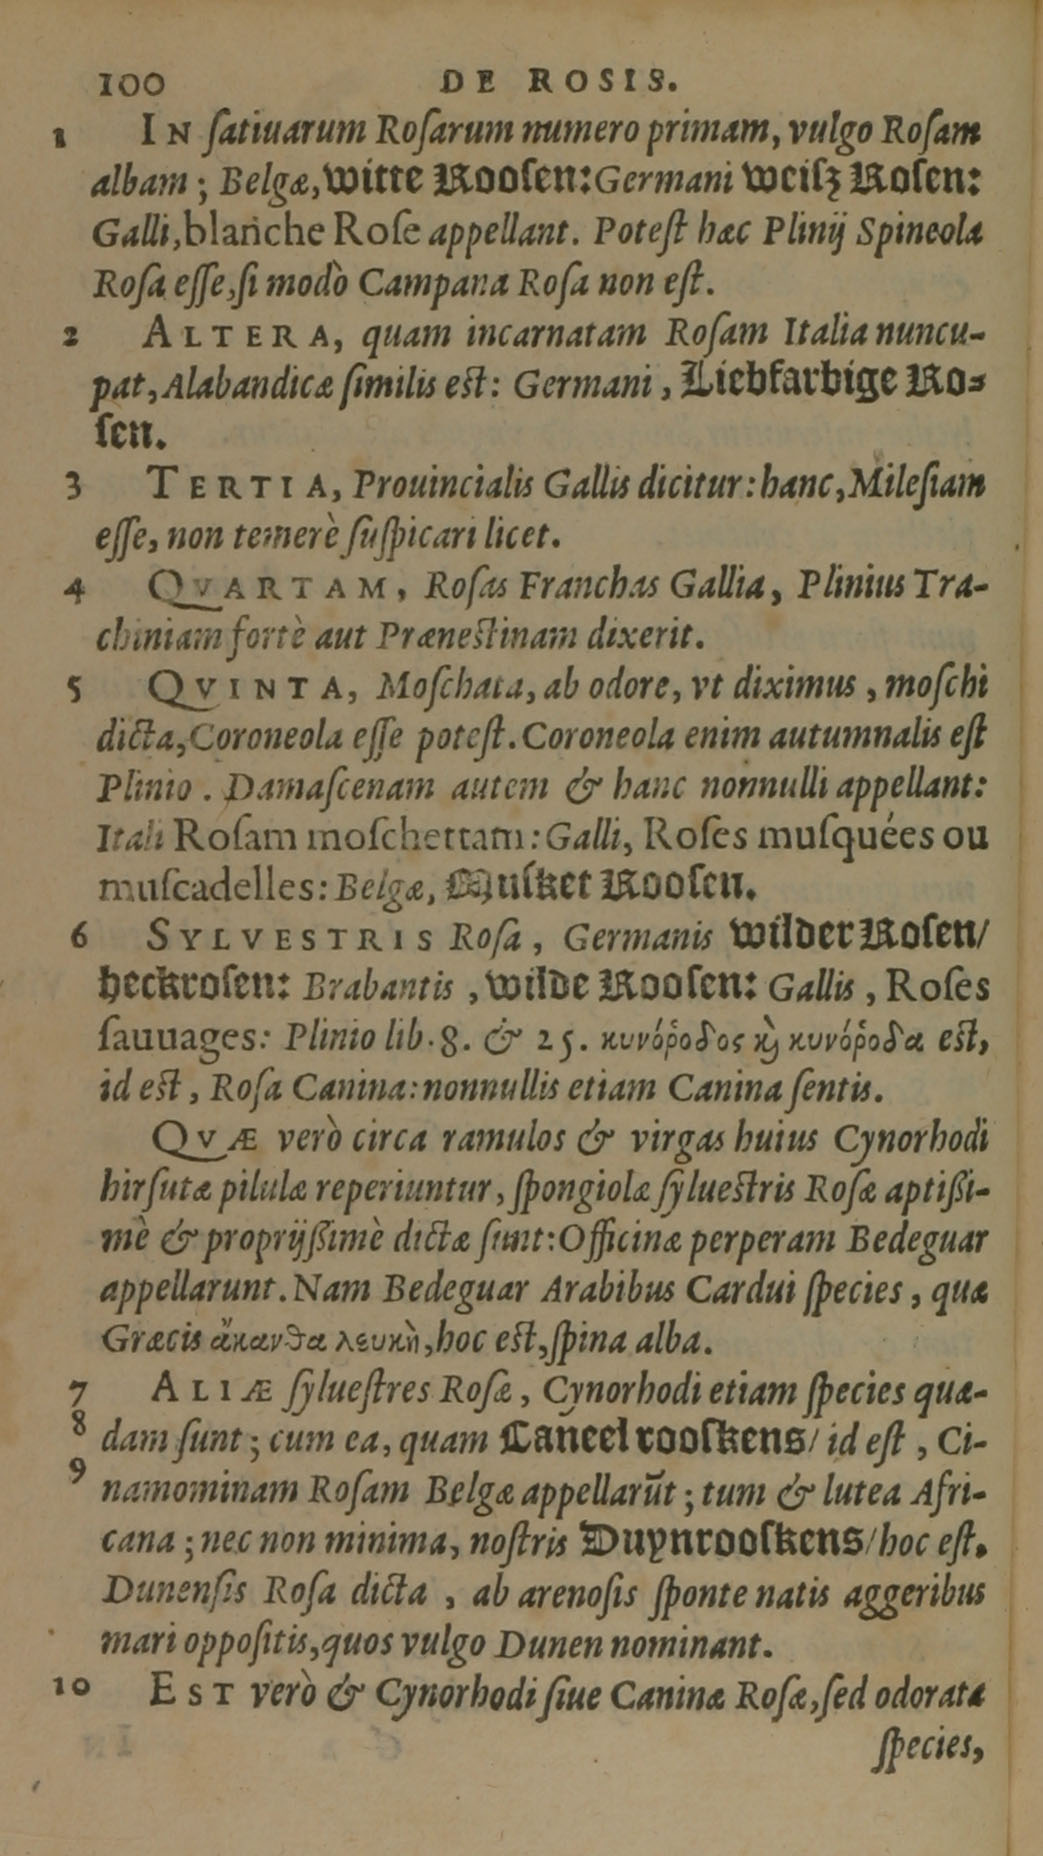 100 DE ROSIS.
1 IN ſatiuarum Roſarum numero primam, vulgo Roſam
albam; Belgæ, witte Rooſen: Germani weiſz Roſen:
Galli, blanche Roſe appellant. Poteſt hæc Plinij Spineola
Roſa eſſe, ſi modò Campana Roſa non eſt.
2 ALTERA, quam incarnatam Roſam Italia nuncu-
pat, Alabandicæ ſimilis eſt: Germani, Liebfarbige Ro-
ſen.
3 TERTIA, Prouincialis Gallis dicitur: hanc, Mileſiam
eſſe, non temerè ſuſpicari licet.
4 QVARTAM, Roſas Franchas Gallia, Plinius Tra-
chiniam fortè aut Præneſtinam dixerit.
5 QVINTA, Moſchata, ab odore, vt diximus, moſchi
dicta, Coroneola eſſe poteſt. Coroneola enim autumnalis eſt
Plinio. Damaſcenam autem & hanc nonnulli appellant:
Itali Roſam moſchettam: Galli, Roſes muſquées ou
muſcadelles: Belgæ, Muſket Rooſen.
6 SYLVESTRIS Roſa, Germanis wilder Roſen/
heckroſen: Brabantis, wilde Rooſen: Gallis, Roſes
ſauuages: Plinio lib. 8. & 25. κυνόῤῥοδος κỳ κυνόῤῥοδα eſt,
id eſt, Roſa Canina: nonnullis etiam Canina ſentis.
QVÆ verò circa ramulos & virgas huius Cynorhodi
hirſutæ pilulæ reperiuntur, ſpongiolæ ſylueſtris Roſæ aptißi-
mè & proprijßimè dictæ ſunt: Officinæ perperam Bedeguar
appellarunt. Nam Bedeguar Arabibus Cardui ſpecies, quæ
Græcis ἄκανθα λευκὴ, hoc eſt, ſpina alba.
7 ALIÆ ſylueſtres Roſæ, Cynorhodi etiam ſpecies quæ-
8 dam ſunt; cum ea, quam Caneel rooſkens/ id eſt, Ci-
9 namominam Roſam Belgæ appellarūt; tum & lutea Afri-
cana; nec non minima, noſtris Duynrooſkens/ hoc eſt,
Dunenſis Roſa dicta, ab arenoſis ſponte natis aggeribus
mari oppoſitis, quos vulgo Dunen nominant.
10 EST verò & Cynorhodi ſiue Caninæ Roſæ, ſed odoratæ
ſpecies,